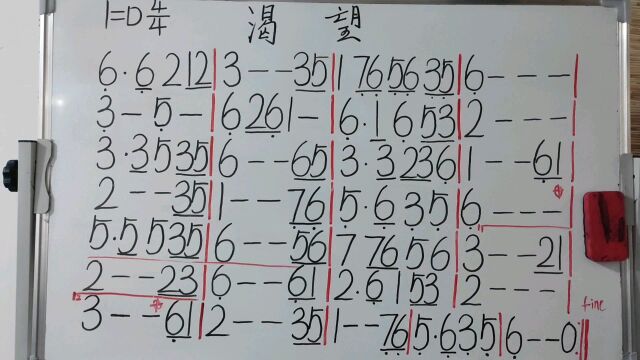 1=D 4/4 渴 望
6·6212|3--35|1765635|6---
3-5-|6261-|6·1653|2---|
3·3535|6--65|3·3236|1--61|
2--35|1--76|5·635|6---|
5·5535|6--56|77656|3--21|
2--23|6--61|2·6153|2---|
fine
3--61|2--35|1--76|5·635|6--0||